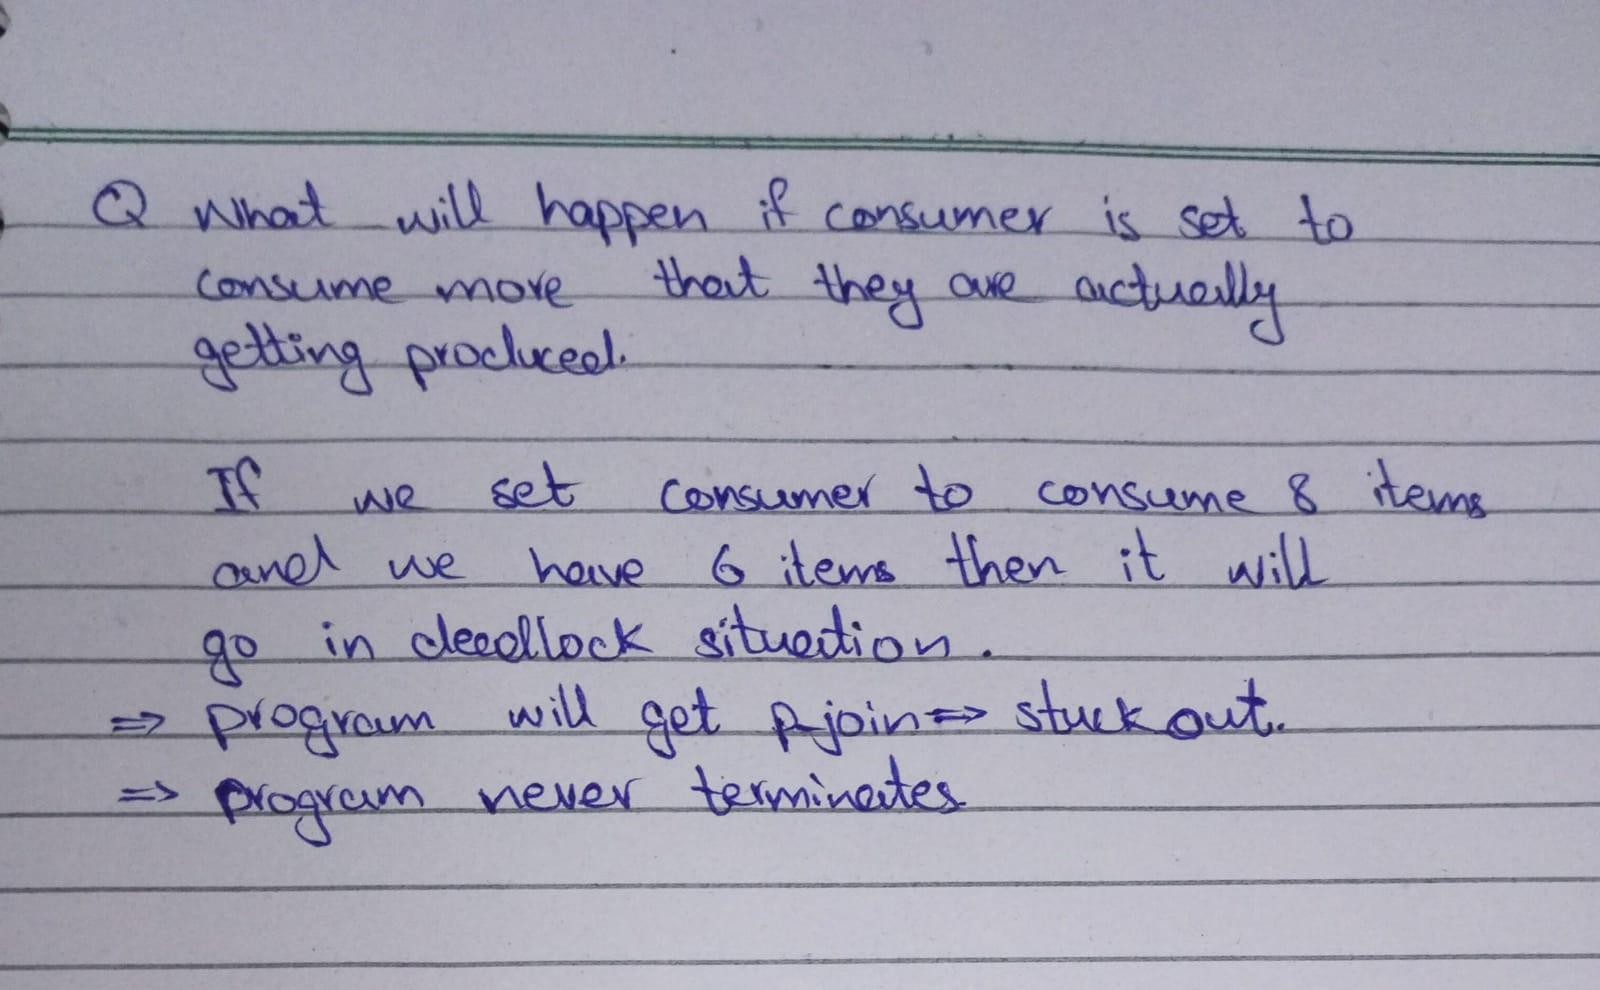 Q What will happen if consumer is set to
consume more that they are actually
getting produced.
If we set consumer to consume 8 items
and we have 6 items then it will
go in deadlock situation.
⇒ program will get p-join ⇒ stuck out.
⇒ program never terminates